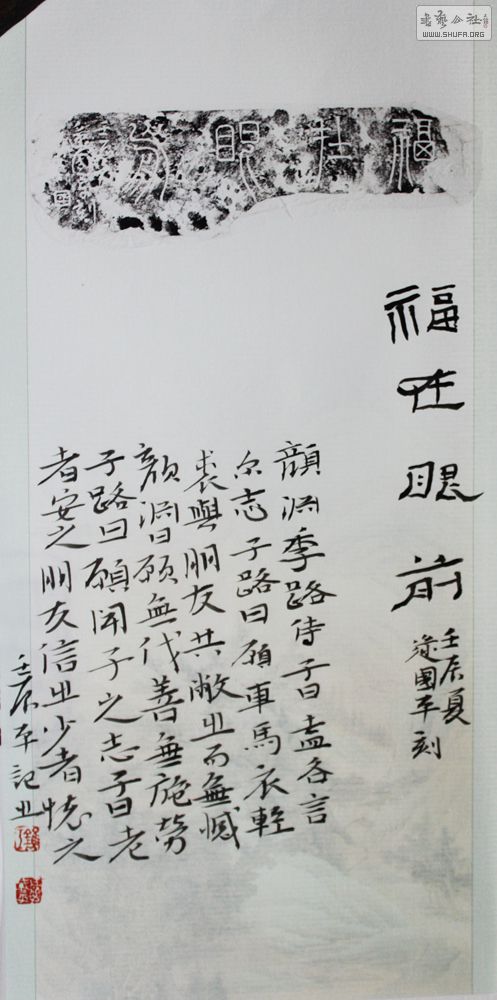 書藝公社
WWW.SHUFA.ORG
福在眼前
福在眼前
壬辰夏
國平刻
顏渊季路侍子曰盍各言
尔志子路曰願車馬衣輕
裘與朋友共敝之而無憾
顏渊曰願無伐善無施勞
子路曰願闻子之志子曰老
者安之朋友信之少者懷之
壬辰平記之